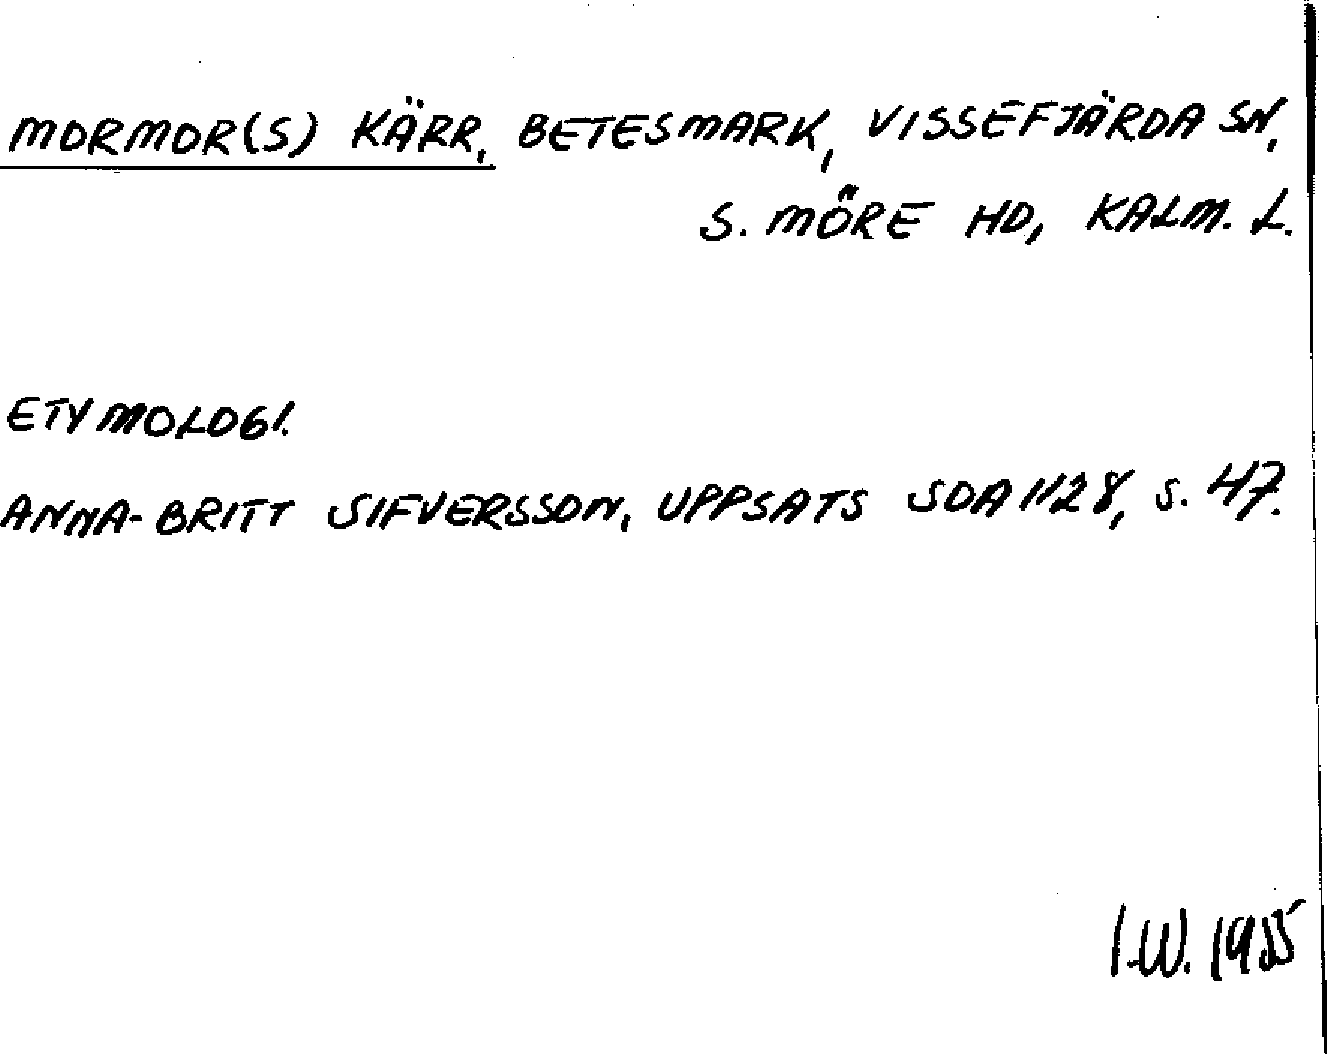 MORMOR(S) KÄRR, BETESMARK, VISSEFJÄRDA SN,
S. MÖRE HD, KALM. L.
ETYMOLOGI.
ANNA-BRITT SIFVERSSON, UPPSATS SOA 1128, S. 47.
I.W. 1985